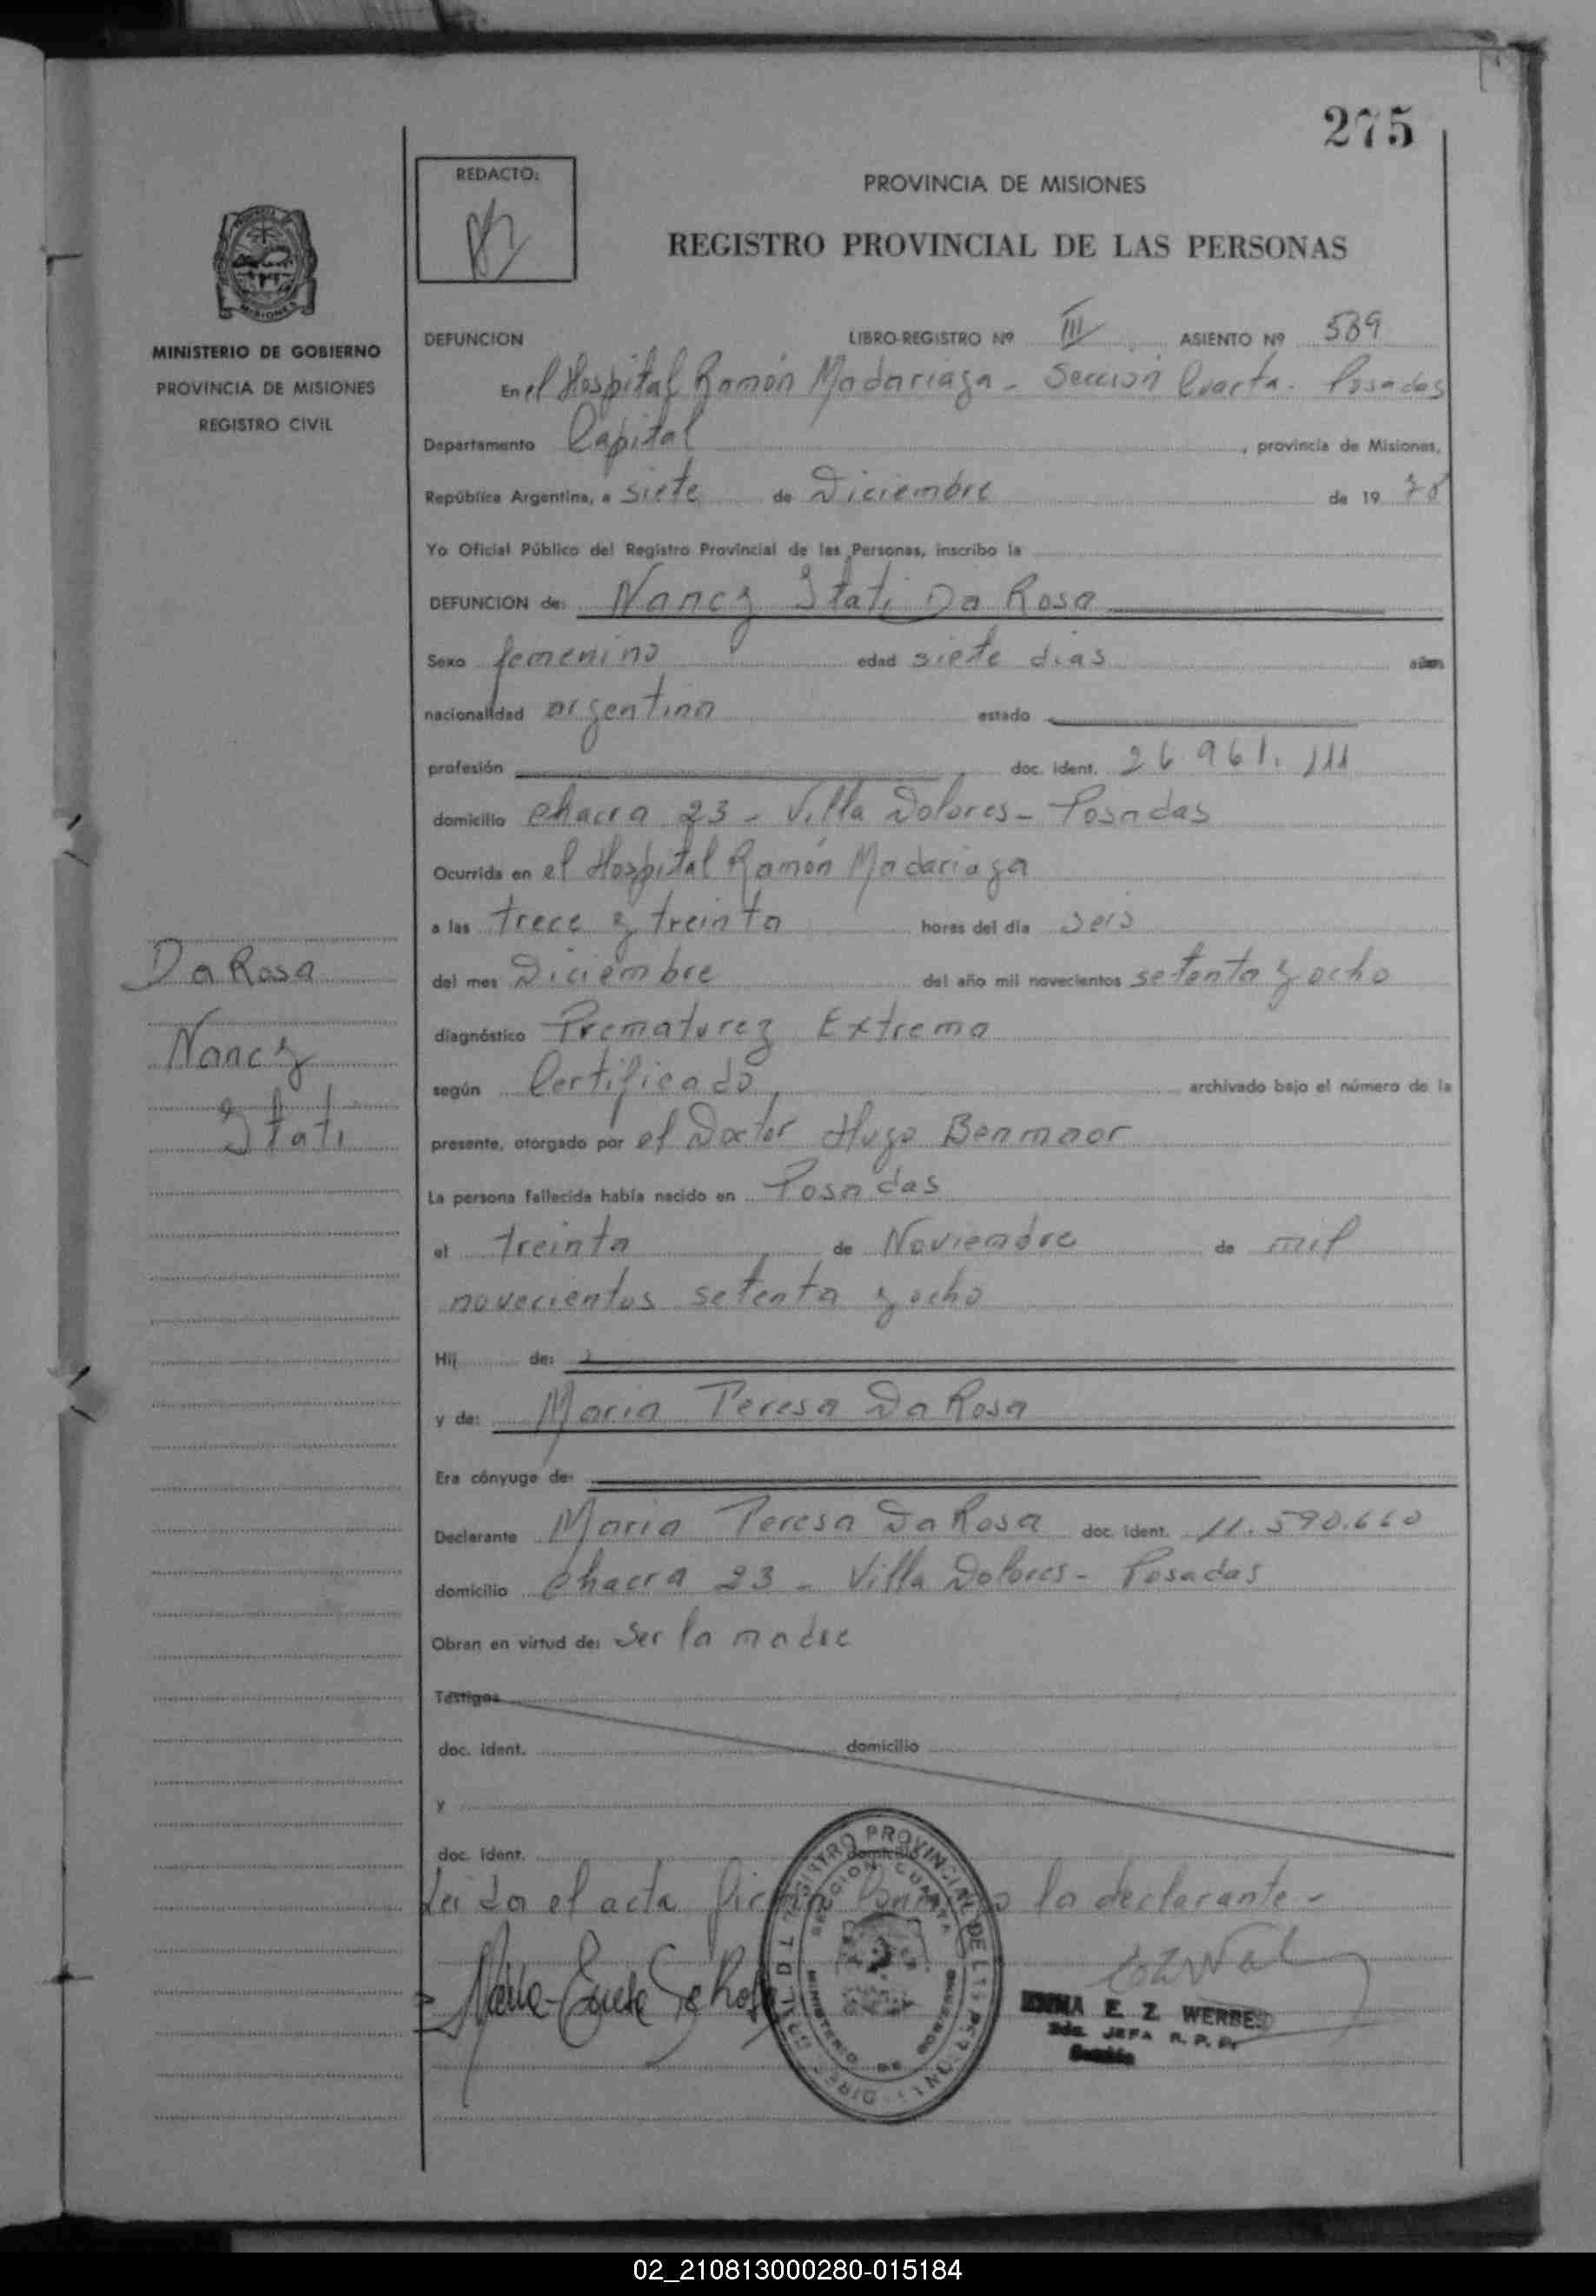 275
REDACTO:
PROVINCIA DE MISIONES
REGISTRO PROVINCIAL DE LAS PERSONAS
MINISTERIO DE GOBIERNO
PROVINCIA DE MISIONES
REGISTRO CIVIL
DEFUNCION LIBRO-REGISTRO Nº III ASIENTO Nº 539
En el Hospital Ramón Madariaga - Sección Cuarta - Posadas
Departamento Capital, provincia de Misiones,
República Argentina, a siete de Diciembre de 19 78
Yo Oficial Público del Registro Provincial de las Personas, inscribo la
DEFUNCION de: Nancy Itati Da Rosa
Sexo femenino edad siete dias años
nacionalidad argentina estado
profesión doc. ident. 26.961.111
domicilio chacra 23 - Villa Dolores - Posadas
Ocurrida en el Hospital Ramón Madariaga
a las trece y treinta horas del día seis
del mes Diciembre del año mil novecientos setenta y ocho
diagnóstico Prematurez Extrema
según Certificado, archivado bajo el número de la
presente, otorgado por el Doctor Hugo Benmaor
La persona fallecida había nacido en Posadas
el treinta de Noviembre de mil
novecientos setenta y ocho
Hij de:
y de: Maria Teresa Da Rosa
Era cónyuge de:
Declarante Maria Teresa Da Rosa doc. ident. 11.590.660
domicilio chacra 23 - Villa Dolores - Posadas
Obran en virtud de: Ser la madre
Testigos
doc. ident. domicilio
y
doc. ident. domicilio
Leida el acta firma la declarante -
Da Rosa
Nancy
Itati
REGISTRO PROVINCIAL DE
SECCION CUARTA
MINISTERIO DE GOBIERNO
E Z WERBES
JEFA R. P. P.
02_210813000280-015184